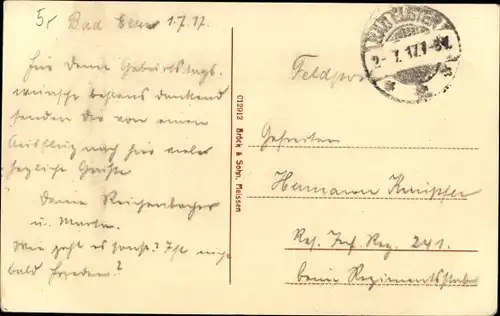 5.
Bad Elster 1.7.17.
Für Deine Geburtstags-
wünsche bestens dankend
senden Dir von einem
Ausflug nach hier viele
herzliche Grüße
Deine Reichenbacher
u. Martin.
Wie geht es sonst? Ist nicht
bald Frieden?
012912 Brück & Sohn, Meissen
BAD ELSTER
2. 7. 17.
Feldpost
Gefreiten
Hermann Knüpfer
Res. Inf. Reg. 241.
beim Regimentsstab